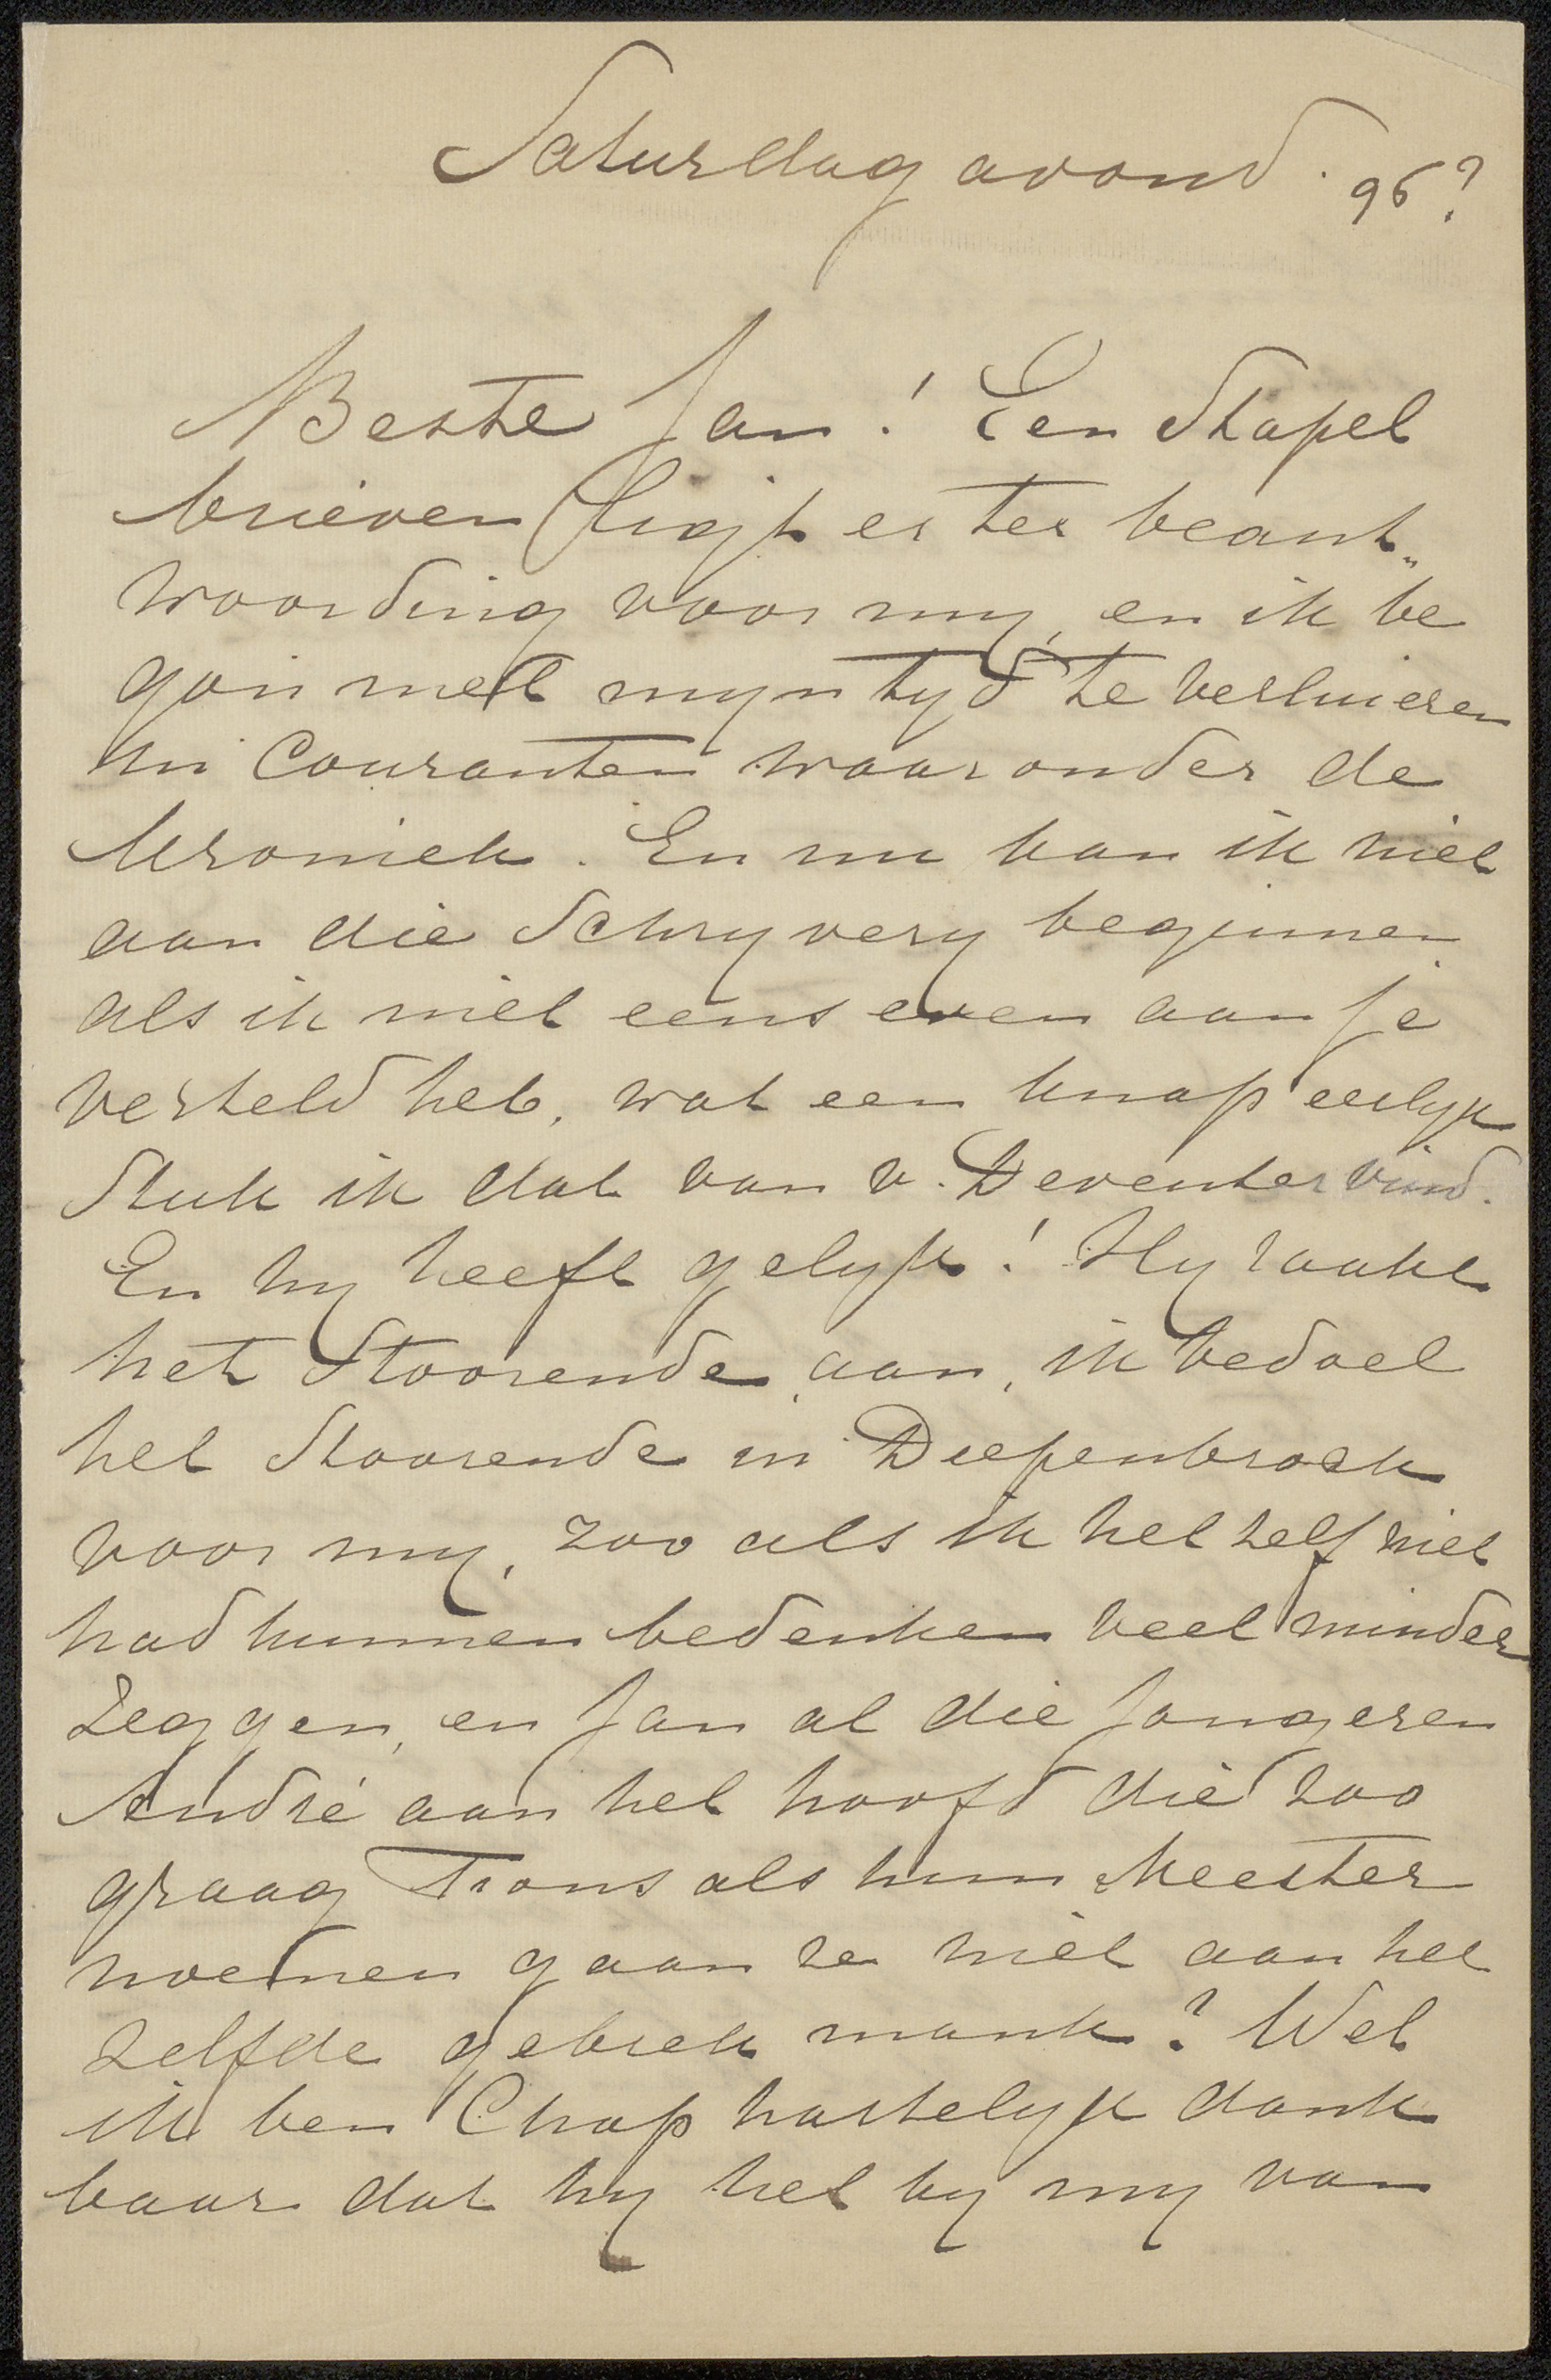 Saturdag avond. 96?
Beste Jan! Een Stapel
brieven ligt er ter beant„
woording voor my, en ik be
gon met myn tyd te verluieren
in Couranten waaronder de
kroniek. En nu kan ik niet
aan die Schryvery beginnen
als ik niet eens even aan je
verteld heb, wat een knap eerlyk
Stuk ik dat van v. Deventer vind.
En hy heeft gelyk! Hy raakt
het Stoorende aan, ik bedoel
het Stoorende in Diepenbrock
voor my, zoo als ik het zelf niet
had kunnen bedenken veel minder
zeggen, en Jan al die Jongeren
André aan het hoofd die zoo
graag Frans als hun Meester
noemen gaan ze niet aan het
zelfde gebrek mank? Wel
ik ben Chap hartelyk dank
baar dat hy het by my van